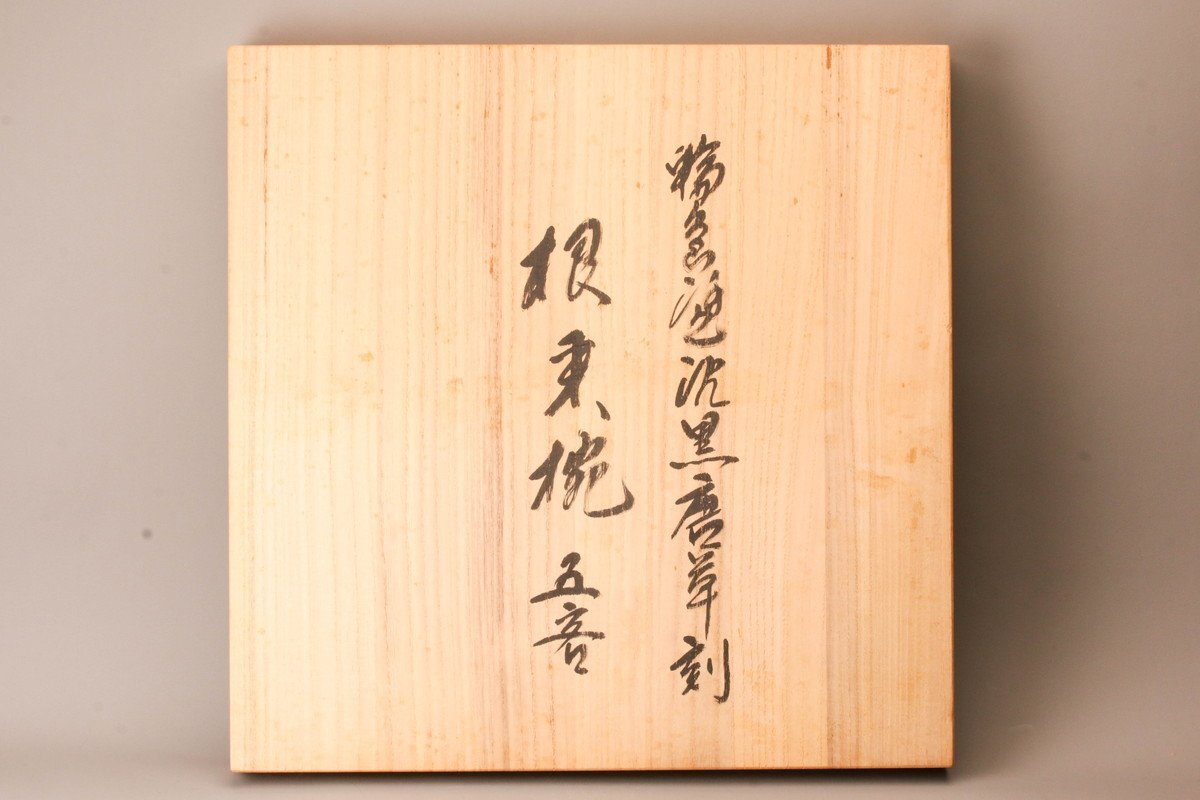 輪島塗沈黒唐草刻
根来椀 五客